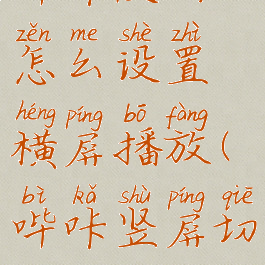 zěn me shè zhì
怎么设置
héng píng bō fàng
横屏播放(
bì kǎ shù píng qiē
哔咔竖屏切